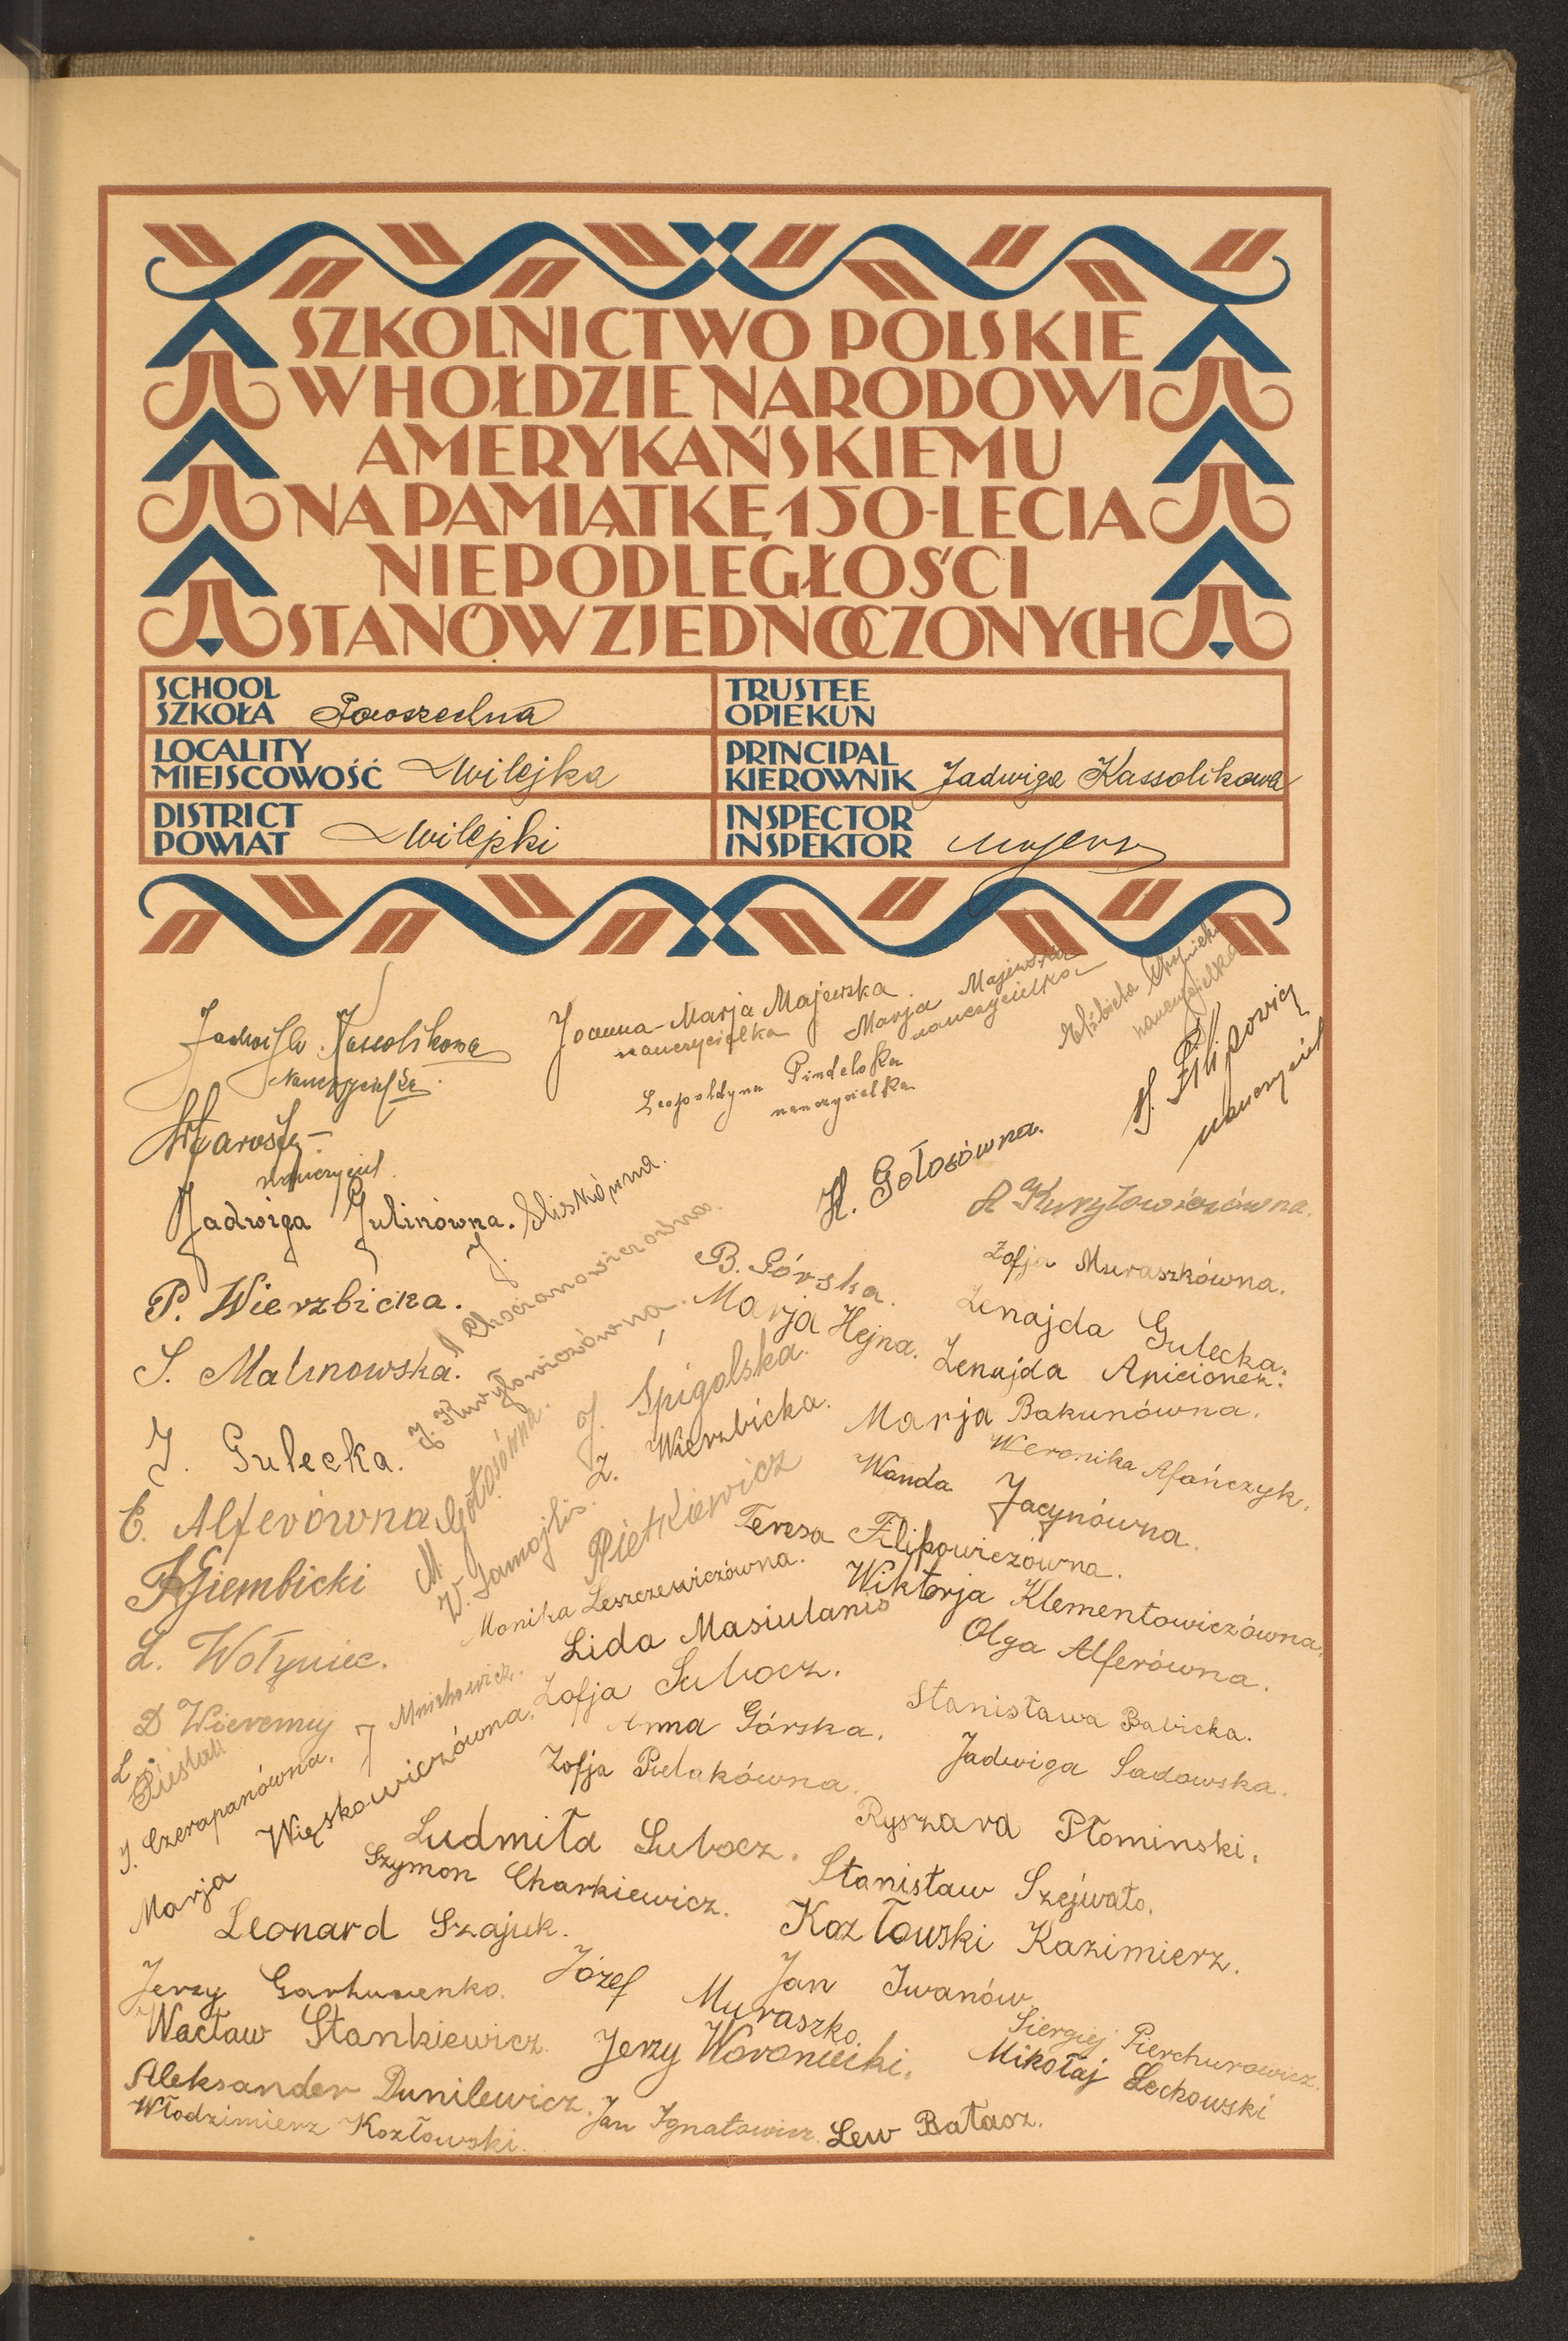 SZKOLNICTWO POLSKIE
W HOŁDZIE NARODOWI
AMERYKAŃSKIEMU
NA PAMIĄTKĘ 150-LECIA
NIEPODLEGŁOŚCI
STANÓW ZJEDNOCZONYCH
SCHOOL
SZKOŁA Powszechna
TRUSTEE
OPIEKUN
LOCALITY
MIEJSCOWOŚĆ Wilejka
PRINCIPAL
KIEROWNIK Jadwiga Kassolikowa
DISTRICT
POWIAT Wilejski
INSPECTOR
INSPEKTOR
Jadwiga Kassolikowa
nauczycielka
Joanna-Marja Majewska
nauczycielka
Marja Majewska
nauczycielka
Elżbieta
nauczycielka
Leopoldyna Pindelska
nauczycielka
H. Filipowicz
nauczyciel
nauczyciel
Jadwiga Gulinówna.
J. Sliskówna.
H. Gołosówna.
Kuryłowiczówna.
P. Wierzbicka.
A Chościanowiczówna.
B. Górska.
Zofja Muraszkówna.
S. Malinowska.
J. Kuryłowiczówna.
Marja Hejna.
Zenajda Gulecka.
Zenajda Apicionek.
J. Gulecka.
J. Śpigolska.
Marja Bakunówna.
E. Alferówna
M. Gołosówna.
Z. Wierzbicka.
Weronika Afończyk.
W. Samojlis.
Pietkiewicz
Wanda Jacynówna.
Giembicki
Teresa Filipowiczówna.
Monika Leszczewiczówna.
Wiktorja Klementowiczówna.
L. Wołyniec.
Lida Masiulanis
Olga Alferówna.
D Wieremiy
J Mnichowicz.
Zofja Subocz.
Stanisława Babicka.
L. Pieślak
Anna Górska.
J. Czerapanówna.
Zofja Pulakówna.
Jadwiga Sadowska.
Marja Więskowiczówna.
Ludmiła Subocz.
Ryszard Płominski.
Szymon Charkiewicz.
Stanisław Szejwało.
Leonard Szajuk.
Kozłowski Kazimierz.
Jerzy
Józef Muraszko.
Jan Iwanów
Wacław Stankiewicz.
Jerzy Woroniecki.
Siergiej Pierchurowicz.
Mikołaj Lechowski
Aleksander Dunilewicz.
Włodzimierz Kozłowski.
Jan Ignatowicz.
Lew Bałasz.